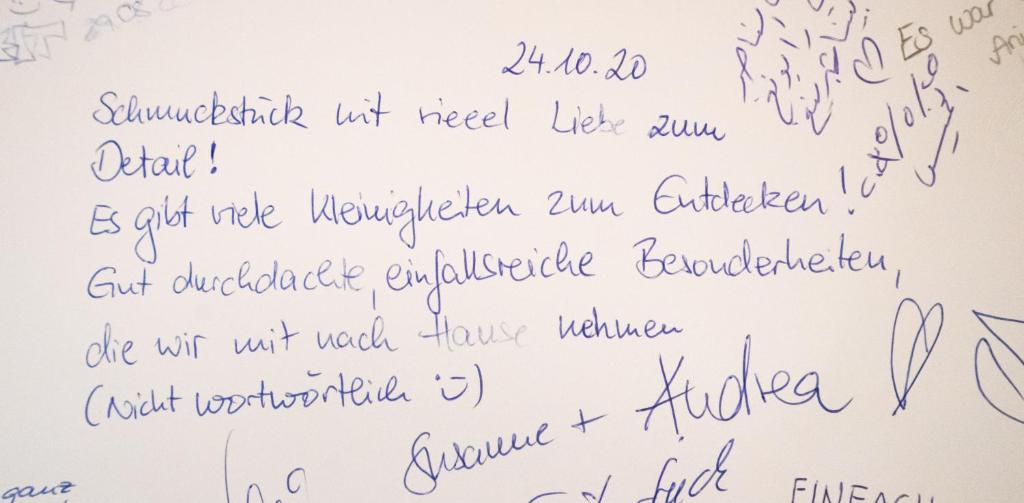 29.08
24.10.20
Es war
Schmuckstück mit vieeel Liebe zum
Detail!
Es gibt viele Kleinigkeiten zum Entdecken!
Gut durchdachte, einfallsreiche Besonderheiten,
die wir mit nach Hause nehmen
(Nicht wortwörtlich :))
Susanne + Andrea
ganz
EINFACH